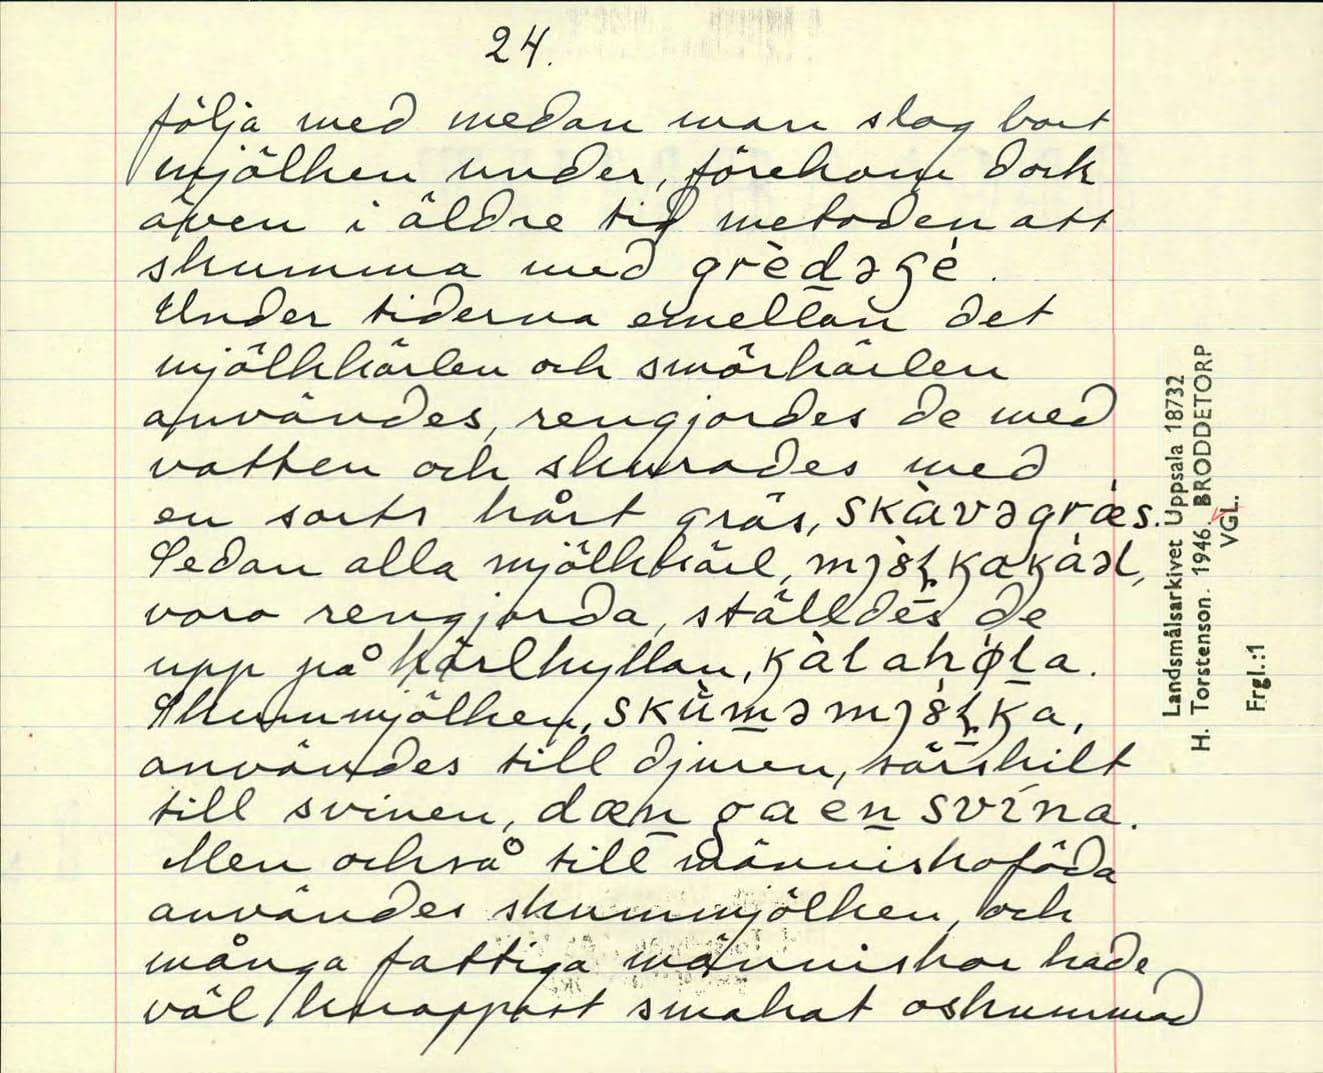 24.
följa med medan man slog bort
mjölken under, förekom dock
även i äldre tid metoden att
skumma med grèdəgé.
Under tiderna emellan det
mjölkkärlen och smörkärlen
användes, rengjordes de med
vatten och skurades med
en sorts hårt gräs, skàvəgræ̀s.
Sedan alla mjölkkärl,
voro rengjorda, ställdes de
upp på kärlhyllan,
Skummjölken,
användes till djuren, särskilt
till svinen, dæn ga en svína.
Men också till människoföda
användes skummjölken, och
många fattiga människor hade
väl knappast smakat oskummad
Landsmålsarkivet Uppsala 18732
H. Torstenson. 1946. BRODDETORP
VGL.
Frgl.:1